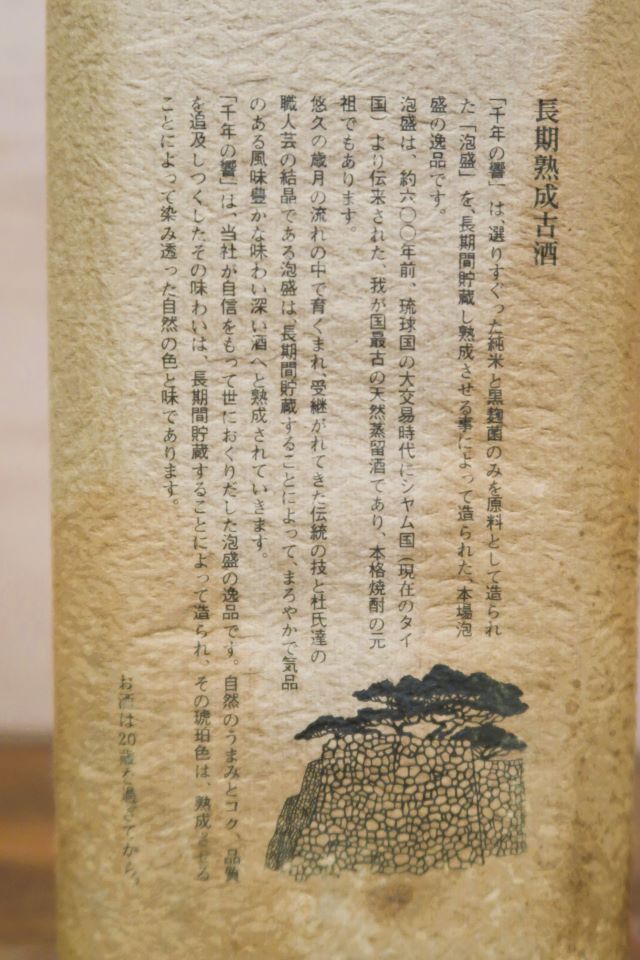 長期熟成古酒
「千年の響」は、選りすぐった純米と黒麹菌のみを原料として造られ
た「泡盛」を、長期間貯蔵し熟成させる事によって造られた、本場泡
盛の逸品です。
泡盛は、約六〇〇年前、琉球国の大交易時代にシャム国（現在のタイ
国）より伝来された、我が国最古の天然蒸留酒であり、本格焼酎の元
祖でもあります。
悠久の歳月の流れの中で育くまれ、受継がれてきた伝統の技と杜氏達の
職人芸の結晶である泡盛は、長期間貯蔵することによって、まろやかで気品
のある風味豊かな味わい深い酒へと熟成されていきます。
「千年の響」は、当社が自信をもって世におくりだした泡盛の逸品です。自然のうまみとコク、品質
を追及しつくしたその味わいは、長期間貯蔵することによって造られ、その琥珀色は、熟成させる
ことによって染み透った自然の色と味であります。
お酒は20歳を過ぎてから。